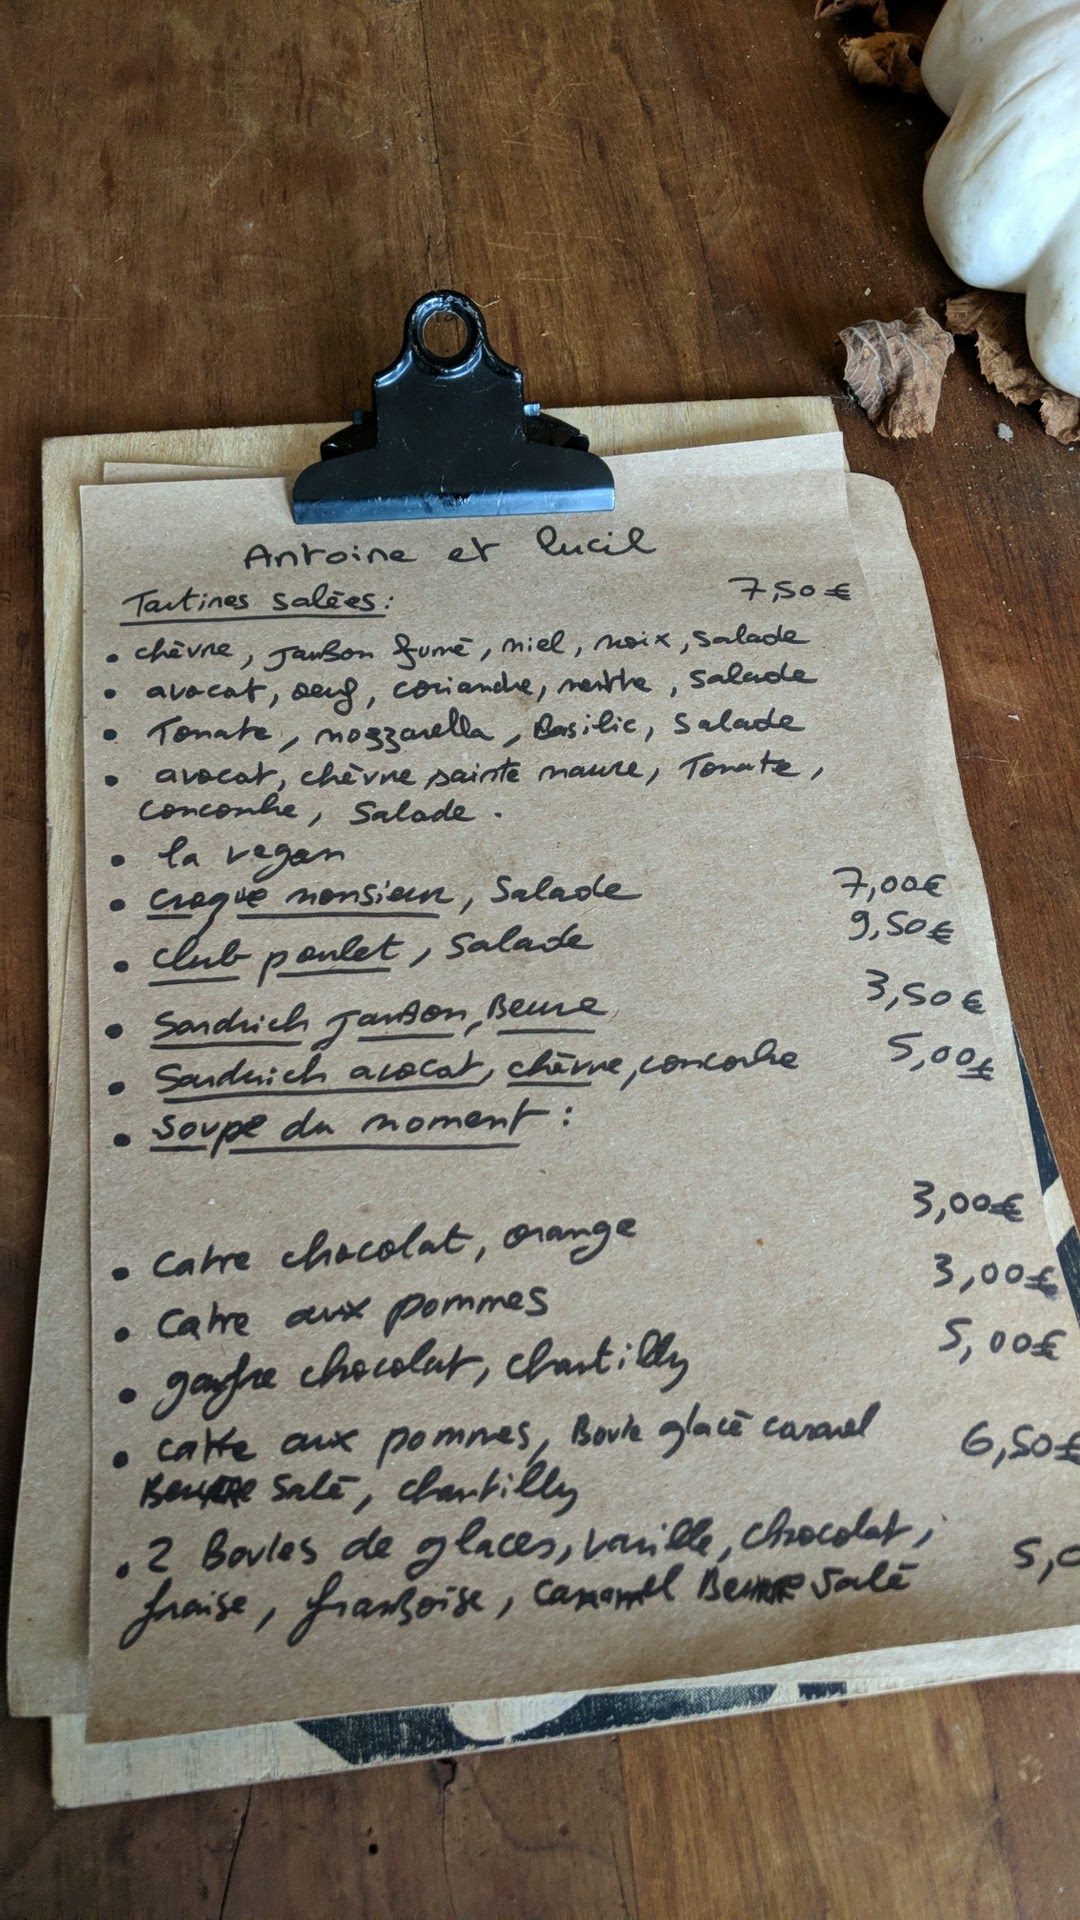 Antoine et Lucil
Tartines salées : 7,50 €
• chèvre, jambon fumé, miel, noix, salade
• avocat, oeuf, coriandre, menthe, salade
• Tomate, mozzarella, Basilic, Salade
• avocat, chèvre sainte maure, Tomate,
concombre, Salade.
• la vegan
• croque monsieur, Salade 7,00€
• club poulet, Salade 9,50€
• Sandwich Jambon, Beurre 3,50€
• Sandwich avocat, chèvre, concombre 5,00€
• Soupe du moment :
• Cake chocolat, orange 3,00€
• Cake aux pommes 3,00€
• gaufre chocolat, chantilly 5,00€
• aux pommes, Boule glacé caramel 6,50€
Beurre Salé, chantilly
• 2 Boules de glaces, vanille, chocolat, 5,0
fraise, framboise, Caramel Beurre Salé